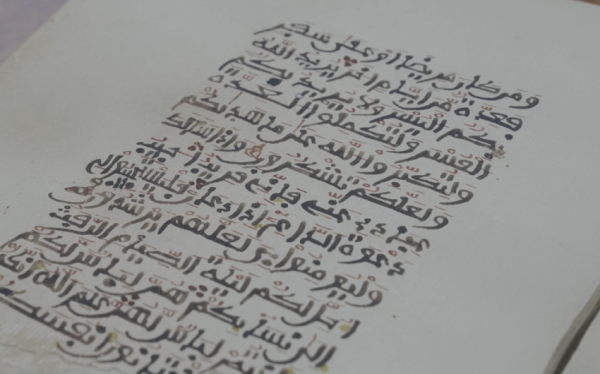 ومن كان مريضا او على سفر
فعدة من ايام اخر يريد الله
بكم اليسر ولا يريد بكم
العسر ولتكملوا العدة
ولتكبروا الله على ما هديكم
ولعلكم تشكرون واذا سالك
عبادي عني فاني قريب اجيب
دعوة الداع اذا دعان فليستجيبوا لي
وليومنوا بي لعلهم يرشدون
احل لكم ليلة الصيام الرفث
الى نسائكم هن لباس لكم
وانتم لباس لهن علم الله انكم
تختانون انفسكم